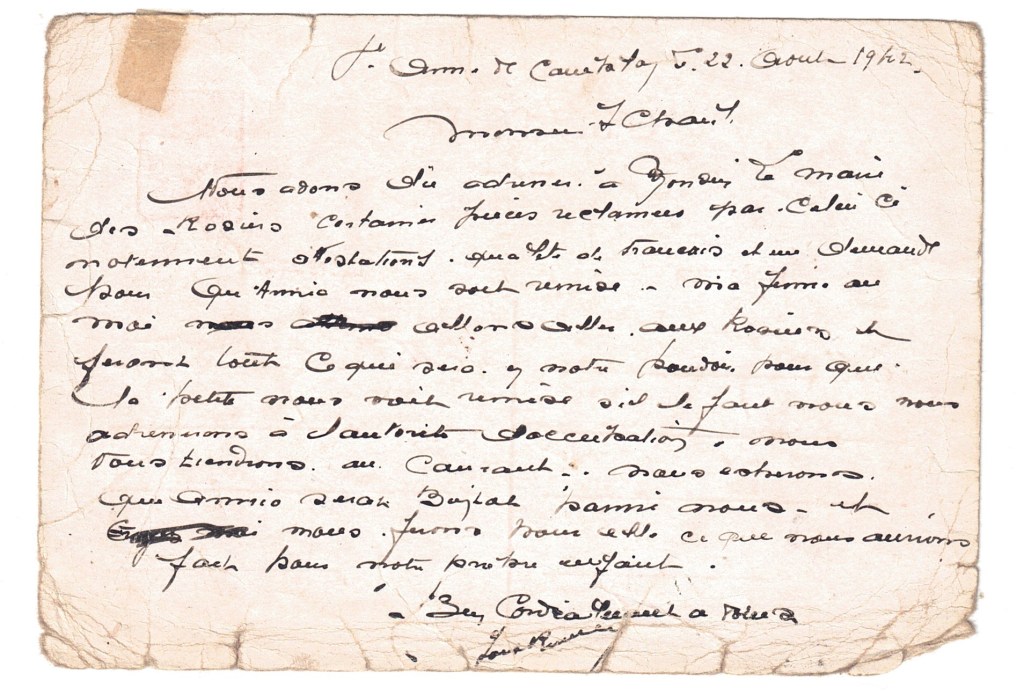 Anne de 22. Août 1942.
Monsieur
Nous avons dû adresser à le maire
des Rosiers certaines pièces réclamées par celui ci
notamment attestations. qualité de français et une demande
pour qu'Annie nous soit remise. ma femme et
moi allons aller aux Rosiers et
ferons tout ce qui sera en notre pouvoir pour que
la petite nous soit remise s'il le faut nous nous
adresserons à l'autorité d'occupation, nous
vous tiendrons au courant. nous espérons
que Annie sera bientôt parmi nous. et
nous ferons pour elle ce que nous aurions
fait pour notre propre enfant.
Bien Cordialement à vous